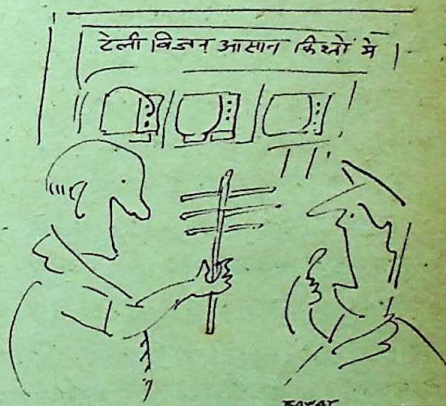 टेली विजन आसान किश्तों मे